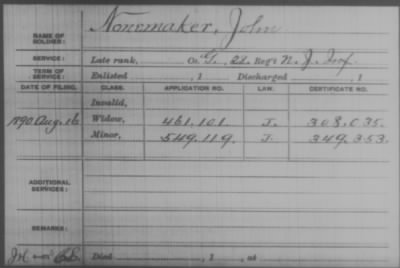 NAME OF SOLDIER: Nonemaker, John
SERVICE: Late rank, Co. G, 22 Reg't N. J. Inf.
TERM OF SERVICE: Enlisted , 1 Discharged , 1
DATE OF FILING. CLASS. APPLICATION NO. LAW. CERTIFICATE NO.
Invalid,
1890 Aug. 16 Widow, 461.101. J. 308.035.
Minor, 549.119. J. 349.353.
ADDITIONAL SERVICES:
REMARKS:
Died , 1 , at